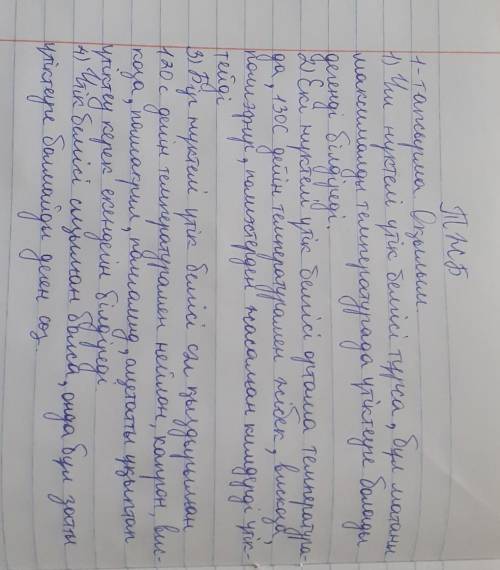 ТЖБ
1-тапсырма Оқылым
1) Үш нүктелі үтік белгісі тұрса, бұл матаны
максималды температурада үтіктеуге болады
дегенді білдіреді.
2) Екі нүктелі үтік белгісі орташа температура-
да, 130С дейін температурамен жібек, вискоза,
полиэфир, полиэстерден жасалған киімдерді үтік-
тейді
3) Бір нүктелі үтік белгісі сәл қыздырылған
130 с дейін температурамен нейлон, капрон, вис-
коза, полиакрил, полиамид, ацетатты ұқыптап
үтіктеу керек екендегін білдіреді
4) Үтік белгісі сызылған болса, онда бұл затты
үтіктеуге болмайды деген сөз.